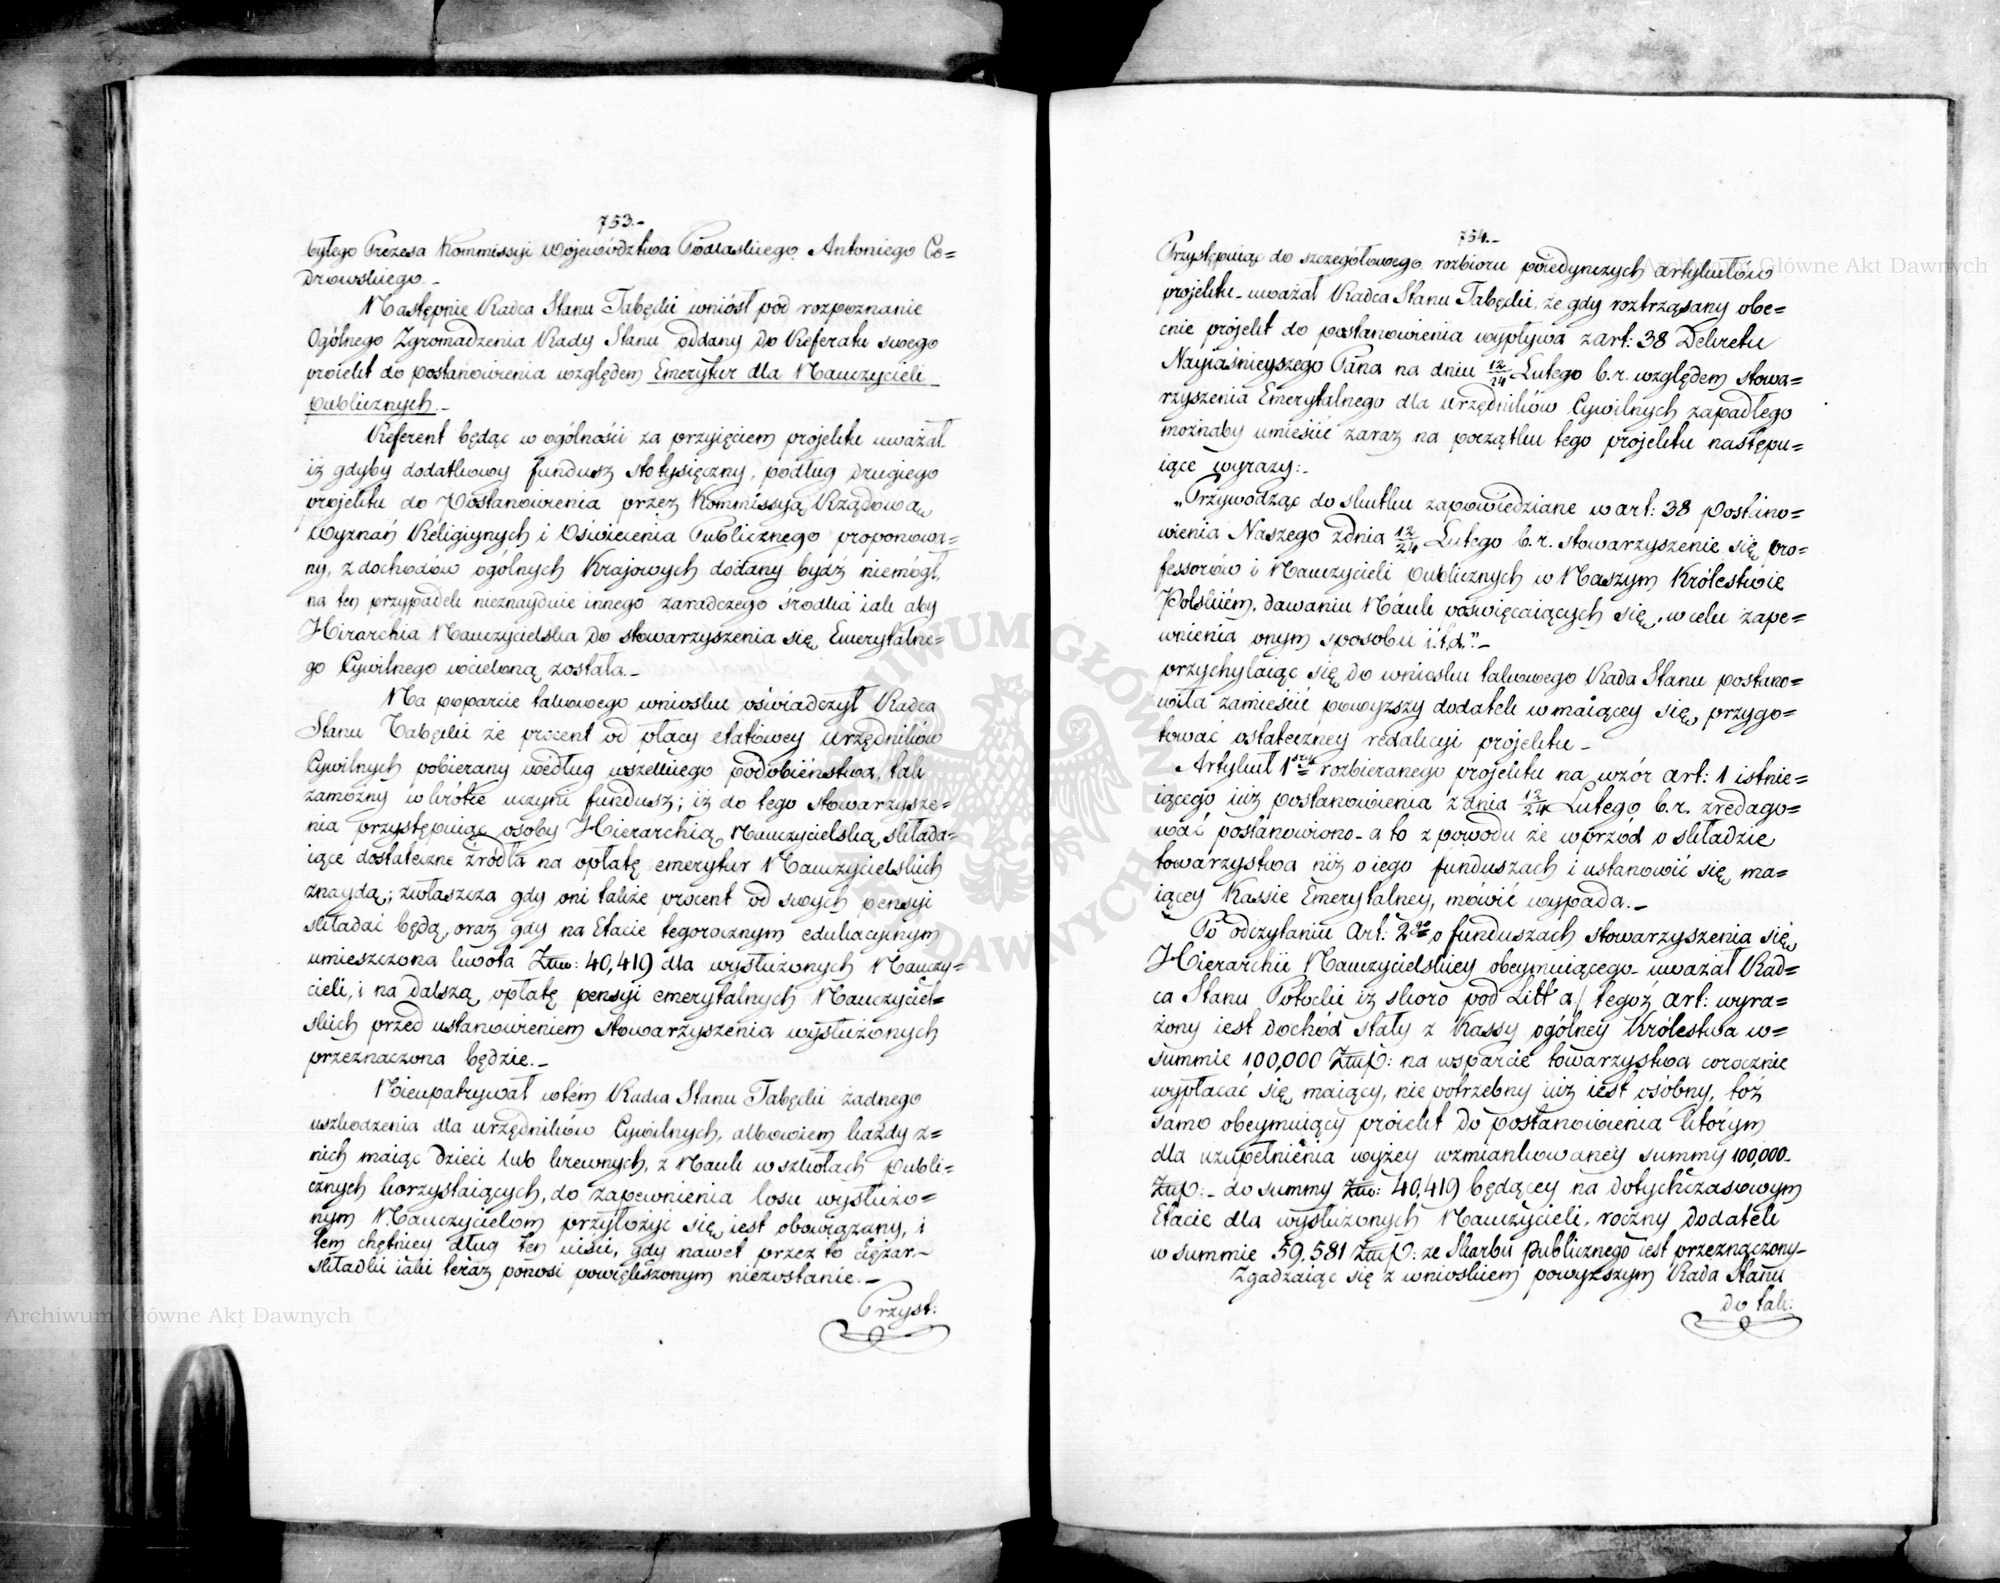 753.-
byłego Prezesa Kommissyi Województwa Podlaskiego Antoniego Co=
drowskiego.-
Następnie Radca Stanu Tabęcki wniósł pod rozpoznanie
Ogólnego Zgromadzenia Rady Stanu oddany do Referatu swego
proiekt do postanowienia względem Emerytur dla Nauczycieli
publicznych.-
Referent będąc w ogólności za przyięciem projektu uważał
iż gdyby dodatkowy fundusz stotysięczny, podług drugiego
projektu do Postanowienia przez Kommissyą Rządową
Wyznań Religiynych i Oświecenia Publicznego proponowa=
ny, z dochodów ogólnych Krajowych dodany bydź niemógł,
na ten przypadek nieznayduie innego zaradczego środka iak aby
Hirarchia Nauczycielska do stowarzyszenia się Emerytalne=
go Cywilnego wcieloną została.-
Na poparcie takowego wniosku oświadczył Radca
Stanu Tabęcki że procent od płacy etatowey urzędników
Cywilnych pobierany według wszelkiego podobieństwa, tak
zamożny wkrótce uczyni fundusz; iż do tego stowarzysze=
nia przystępuiąc osoby Hierarchią Nauczycielską składa=
iące dostateczne źródła na opłatę emerytur Nauczycielskich
znaydą; zwłaszcza gdy oni także procent od swych pensyi
składać będą, oraz gdy na Etacie tegorocznym edukacyinym
umieszczona kwota Złtw: 40,419 dla wysłużonych Nauczy=
cieli, i na dalszą opłatę pensyi emerytalnych Nauczyciel=
skich przed ustanowieniem stowarzyszenia wysłużonych
przeznaczona będzie.-
Nieupatrywał wtém Radca Stanu Tabęcki żadnego
uszkodzenia dla urzędników Cywilnych, albowiem każdy z=
nich maiąc dzieci lub krewnych, z Nauk w szkołach publi=
cznych korzystaiących, do zapewnienia losu wysłużo=
nym Nauczycielom przyłożyć się iest obowiązany, i
tem chętniey dług ten uiści, gdy nawet przez to ciężar
składki iaki teraz ponosi powiększonym niezostanie.-
Przyst:
754.-
Przystępuiąc do szczegółowego rozbioru poiedynczych artykułów
projektu- uważał Radca Stanu Tabęcki, że gdy roztrząsany obe=
cnie projekt do postanowienia wypływa z art: 38 Dekretu
Nayiaśnieyszego Pana na dniu 12/24 Lutego b.r. względem stowa=
rzyszenia Emerytalnego dla urzędników Cywilnych zapadłego
możnaby umieścić zaraz na początku tego projektu następu=
iące wyrazy:-
„Przywodząc do skutku zapowiedziane w art: 38 Postano=
wienia Naszego z dnia 12/24 Lutego b.r. stowarzyszenie się Pro=
fessorów i Nauczycieli Publicznych w Naszym Królestwie
Polskiém, dawaniu Nauk poświęcaiących się, w celu zape=
wnienia onym sposobu i.t.d."-
przychylaiąc się do wniosku takowego Rada Stanu postano=
wiła zamieścić powyższy dodatek w maiącey się przygo=
tować ostateczney redakcyi projektu-
Artykuł 1szy rozbieranego projektu na wzór art: 1 istnie=
iącego iuż postanowienia z dnia 12/24 Lutego b.r. zredago=
wać postanowiono- a to z powodu że wprzód o składzie
towarzystwa niż o iego funduszach i ustanowić się ma=
iącey Kassie Emerytalney, mówić wypada.-
Po odczytaniu Art: 2go o funduszach stowarzyszenia się
Hierarchii Nauczycielskiey obeymuiącego- uważał Rad=
ca Stanu Potocki iż skoro pod Litt a/ tegoż art: wyra=
żony iest dochód stały z Kassy ogólney Królestwa w=
summie 100,000 Złtp: na wsparcie towarzystwa corocznie
wypłacać się maiący, nie potrzebny iuż iest osóbny, toż
samo obeymuiący proiekt do postanowienia którym
dla uzupełnienia wyżey wzmiankowaney summy 100,000-
Złtp:- do summy Złtw: 40,419 będącey na dotychczasowym
Etacie dla wysłużonych Nauczycieli, roczny dodatek
w summie 59,581 Złtp: ze Skarbu publicznego iest przeznaczony-
Zgadzaiąc się z wnioskiem powyższym Rada Stanu
do tak:
Archiwum Główne Akt Dawnych
Archiwum Główne Akt Dawnych
ARCHIWUM GŁÓWNE AKT DAWNYCH